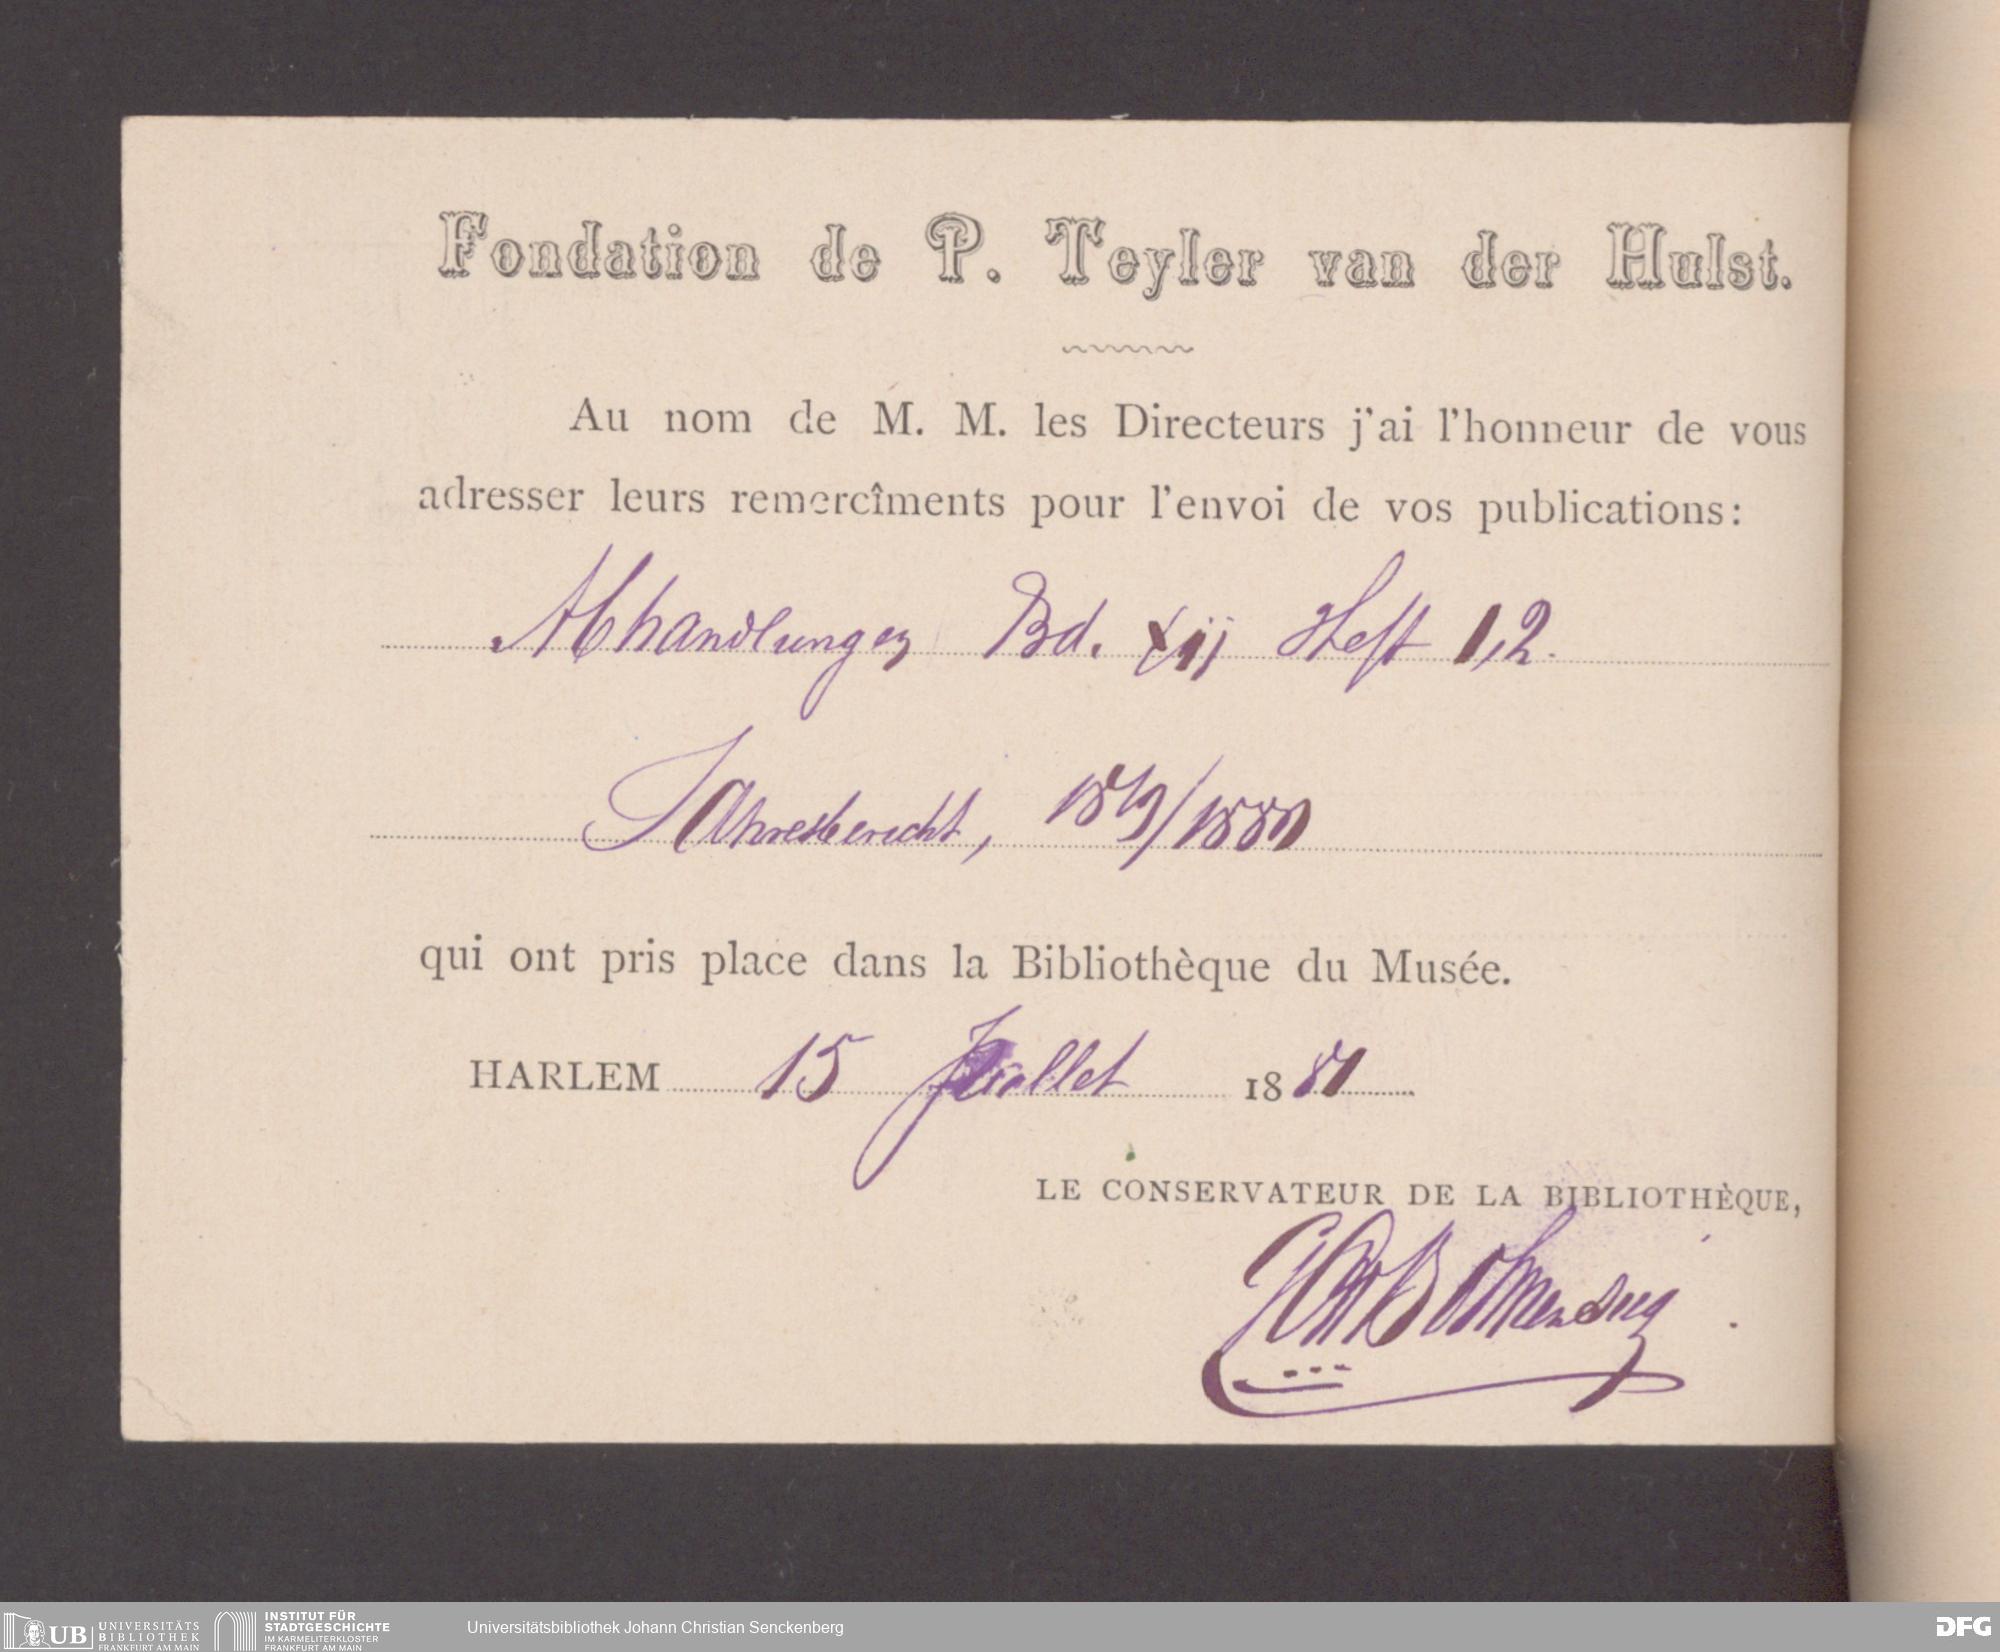 Fondation de P. Teyler van der Hulst.
Au nom de M. M. les Directeurs j'ai l'honneur de vous
adresser leurs remercîments pour l'envoi de vos publications:
Abhandlungen Bd. xij Heft 1,2.
Jahresbericht, 1879/1880
qui ont pris place dans la Bibliothèque du Musée.
HARLEM 15 Juillet 1881
LE CONSERVATEUR DE LA BIBLIOTHÈQUE,
UB UNIVERSITÄTS BIBLIOTHEK FRANKFURT AM MAIN
INSTITUT FÜR STADTGESCHICHTE IM KARMELITERKLOSTER FRANKFURT AM MAIN
Universitätsbibliothek Johann Christian Senckenberg
DFG